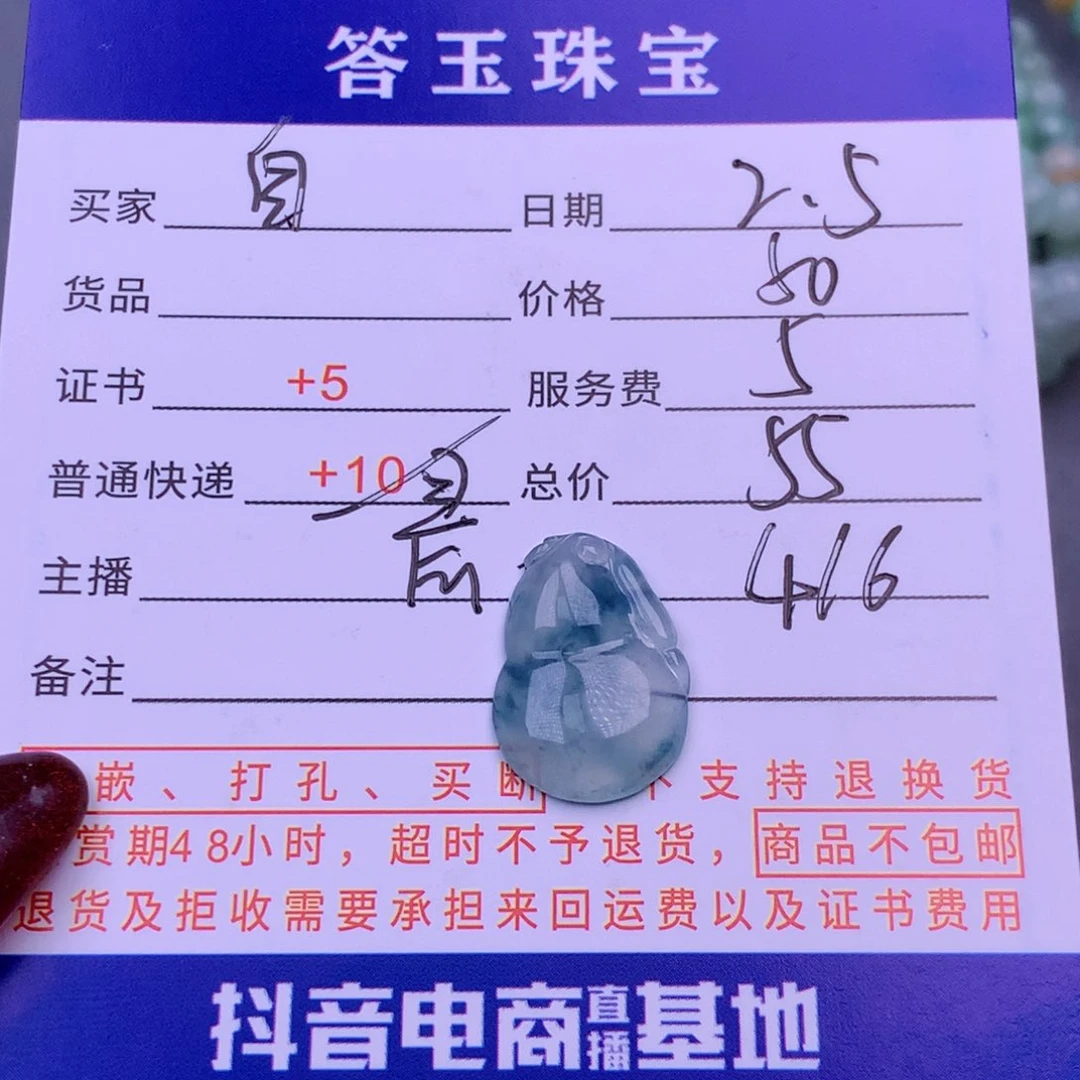 答玉珠宝
买家 自 日期 2.5
货品 价格 50
证书 +5 服务费 5
普通快递 +10 总价 55
主播 416
备注
嵌、打孔、买断 不支持退换货
赏期48小时，超时不予退货，商品不包邮
退货及拒收需要承担来回运费以及证书费用
抖音电商直播基地